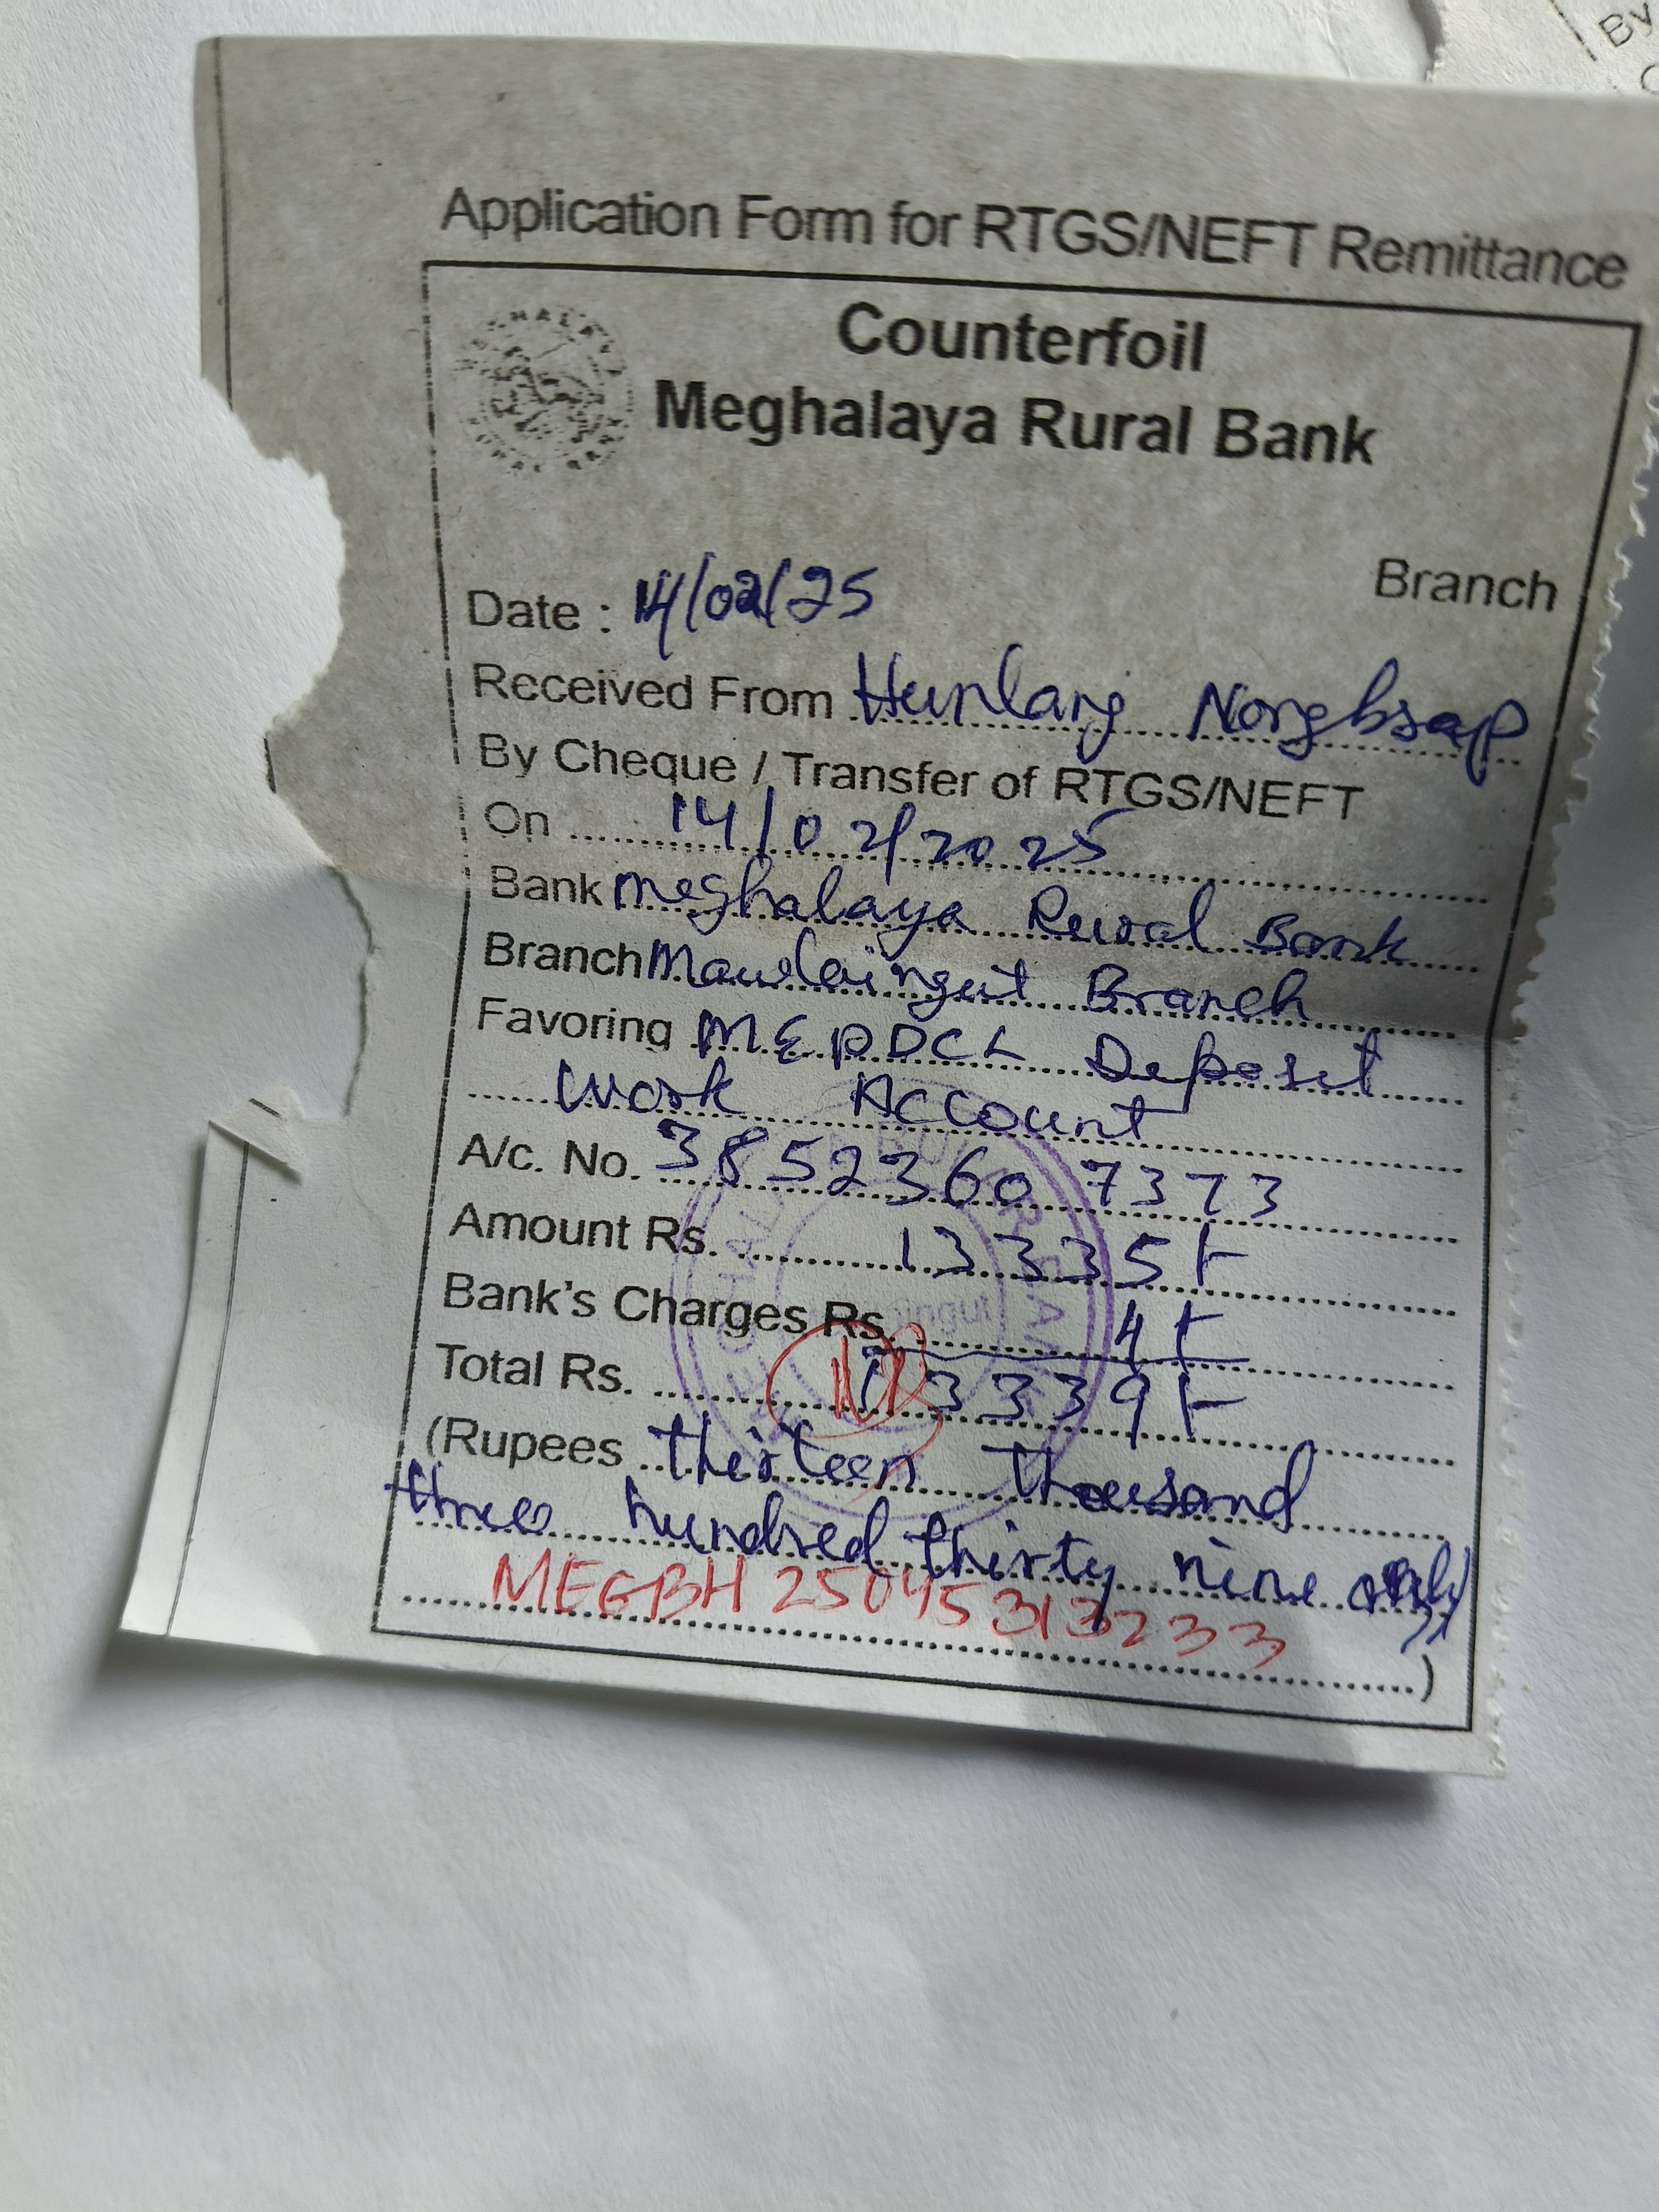 By
Application Form for RTGS/NEFT Remittance
Counterfoil
Meghalaya Rural Bank
Branch
Date : 14/02/25
Received From Hunlang Nongbsap
By Cheque / Transfer of RTGS/NEFT
On 14/02/2025
Bank Meghalaya Rural Bank
Branch Mawlaingut Branch
Favoring MEPDCL Deposit
Work Account
A/c. No. 38523607373
Amount Rs. 13335/-
Bank's Charges Rs. 4/-
Total Rs. 13339/-
(Rupees thirteen thousand
three hundred thirty nine only
MEGBH 25045313233
)